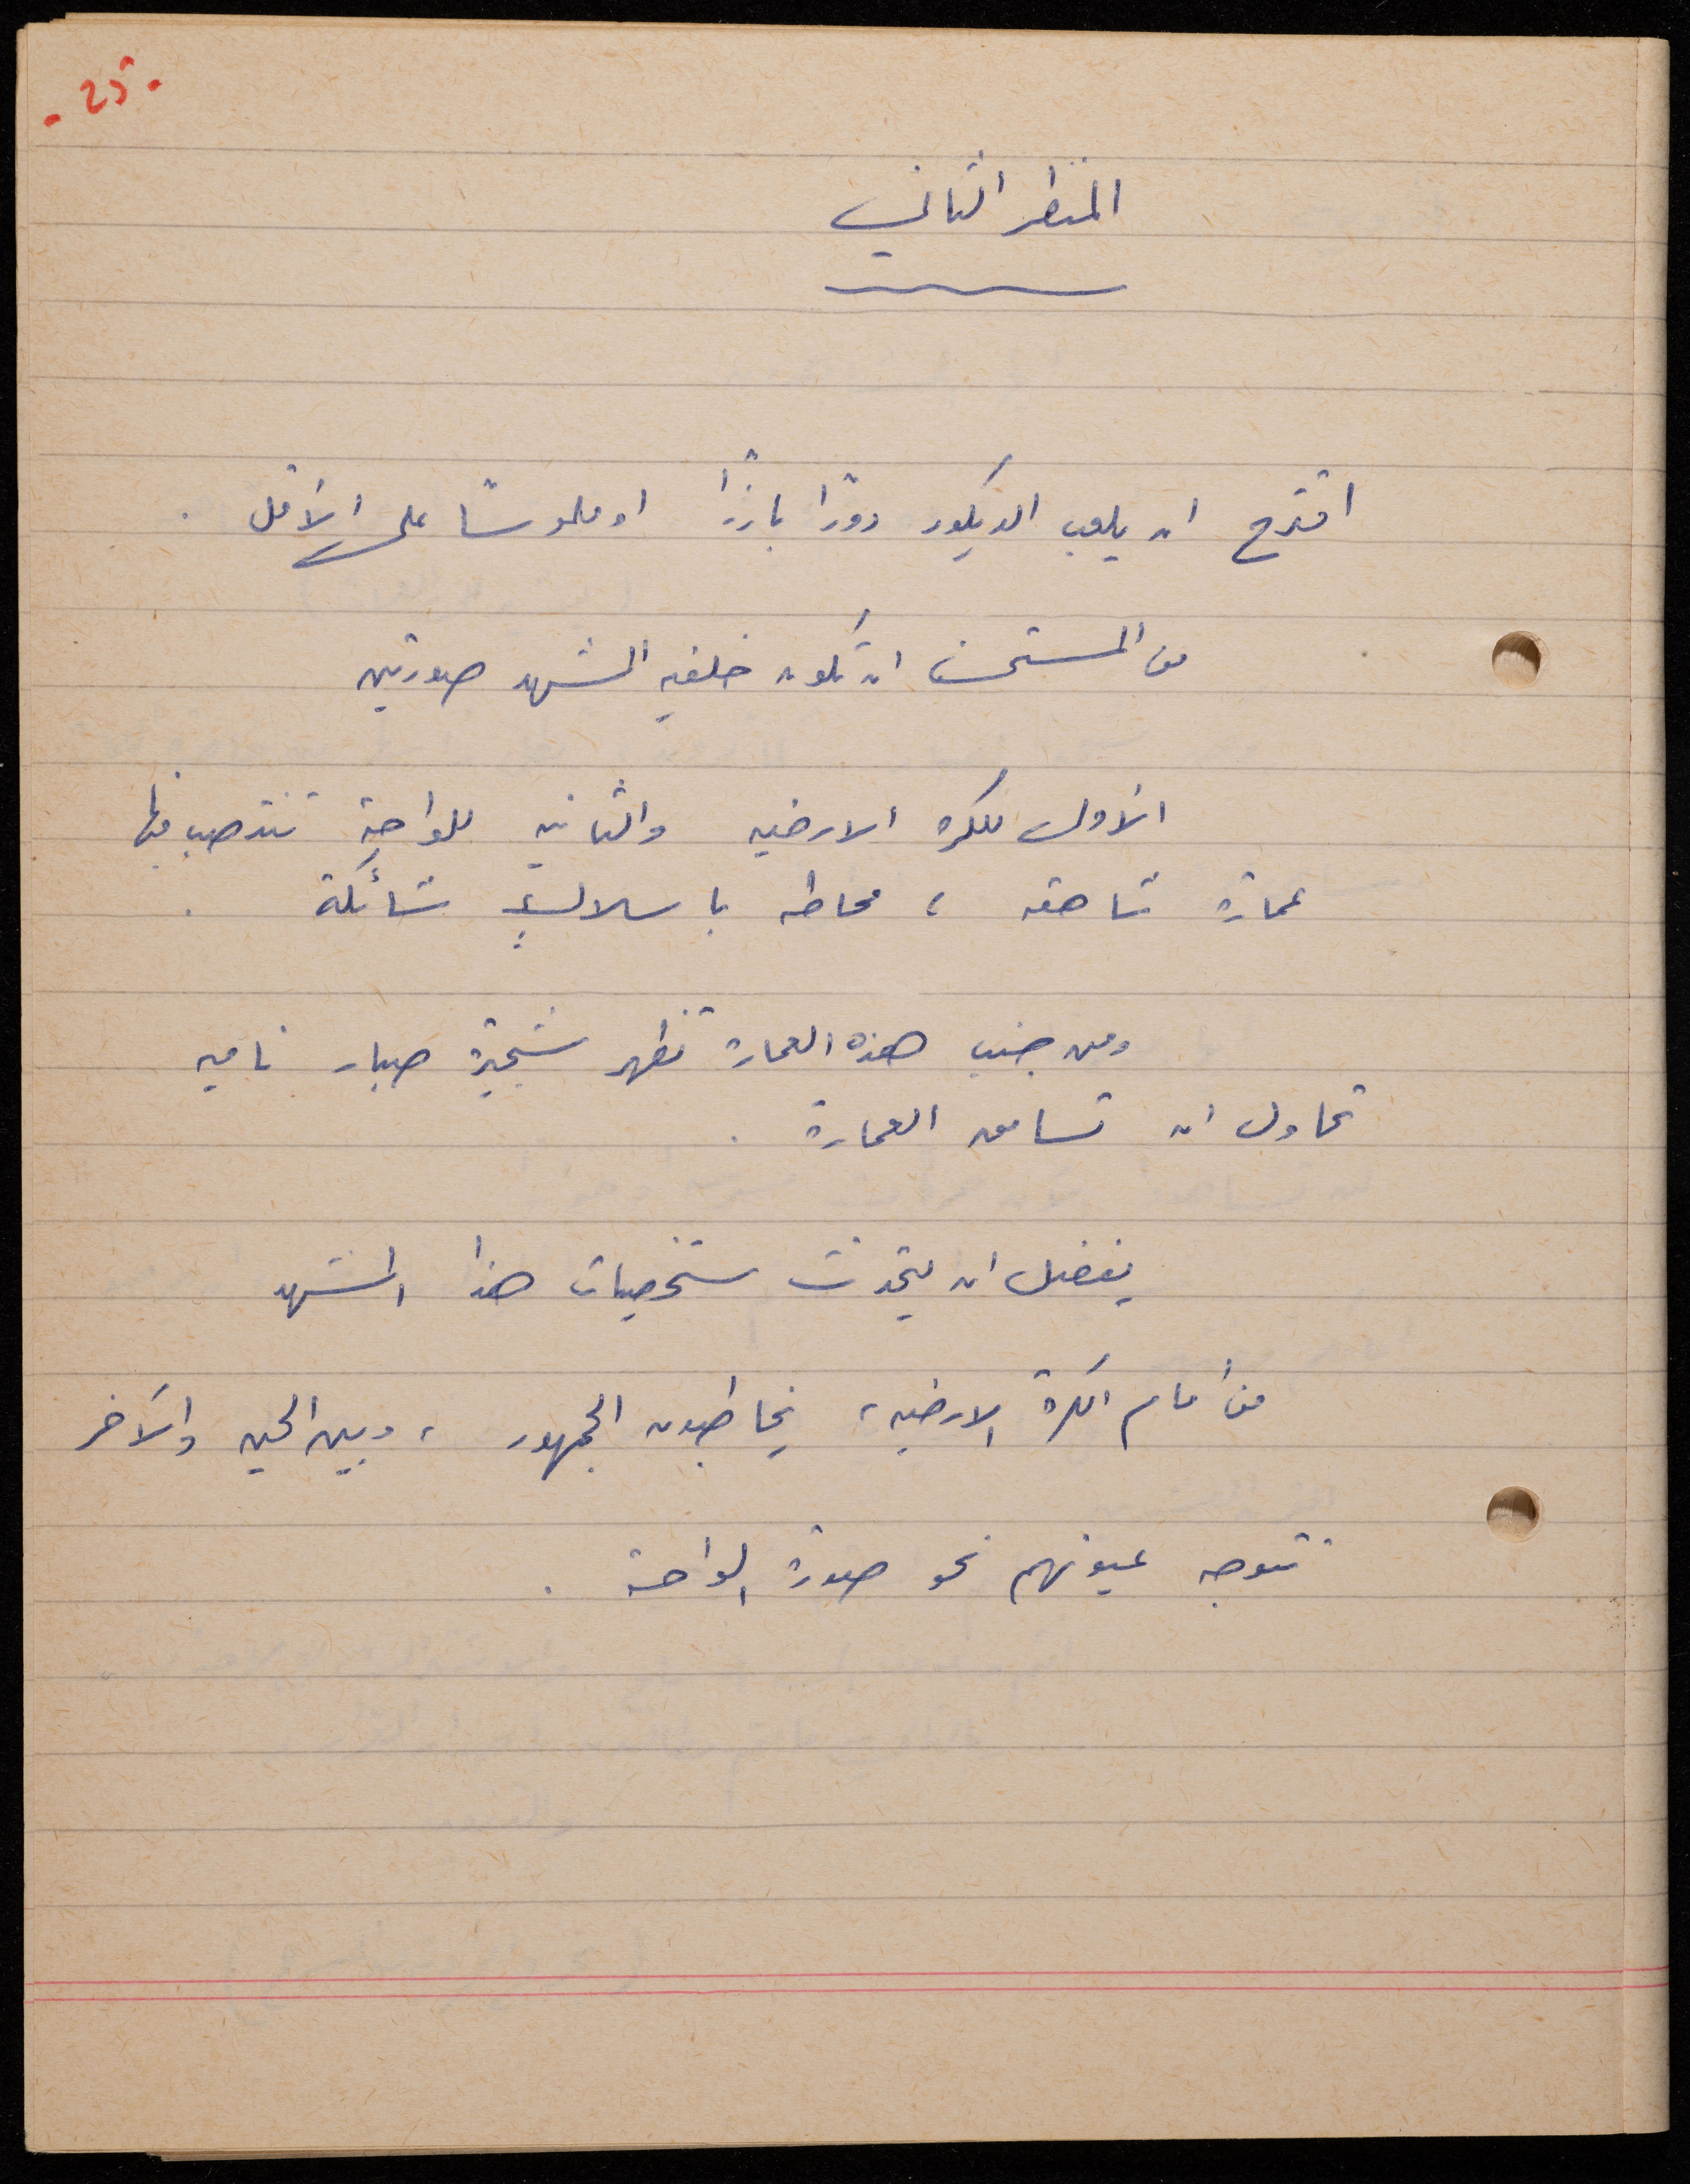 - 25 -
المنظر الثاني
اقترح ان يلعب الديكور دورًا بارزًا او ملموسًا على الأقل .
من المستحسن ان تكون خلفيه المشهد صورتين
الأولى للكره الارضيه والثانيه للواحة تنتصب فيها
عمارة شاهقه ، محاطه باسلاكٍ شائكة .
ومن جنب هذه العمارة تظهر شجيرة صبار ناميه
تحاول ان تسامق العمارة .
يفضل ان يتحدث شخصيات هذا المشهد
من أمام الكرة الارضيه ، يخاطبون الجمهور ، وبين الحين والآخر
تتوجه عيونهم نحو صورة الواحة .